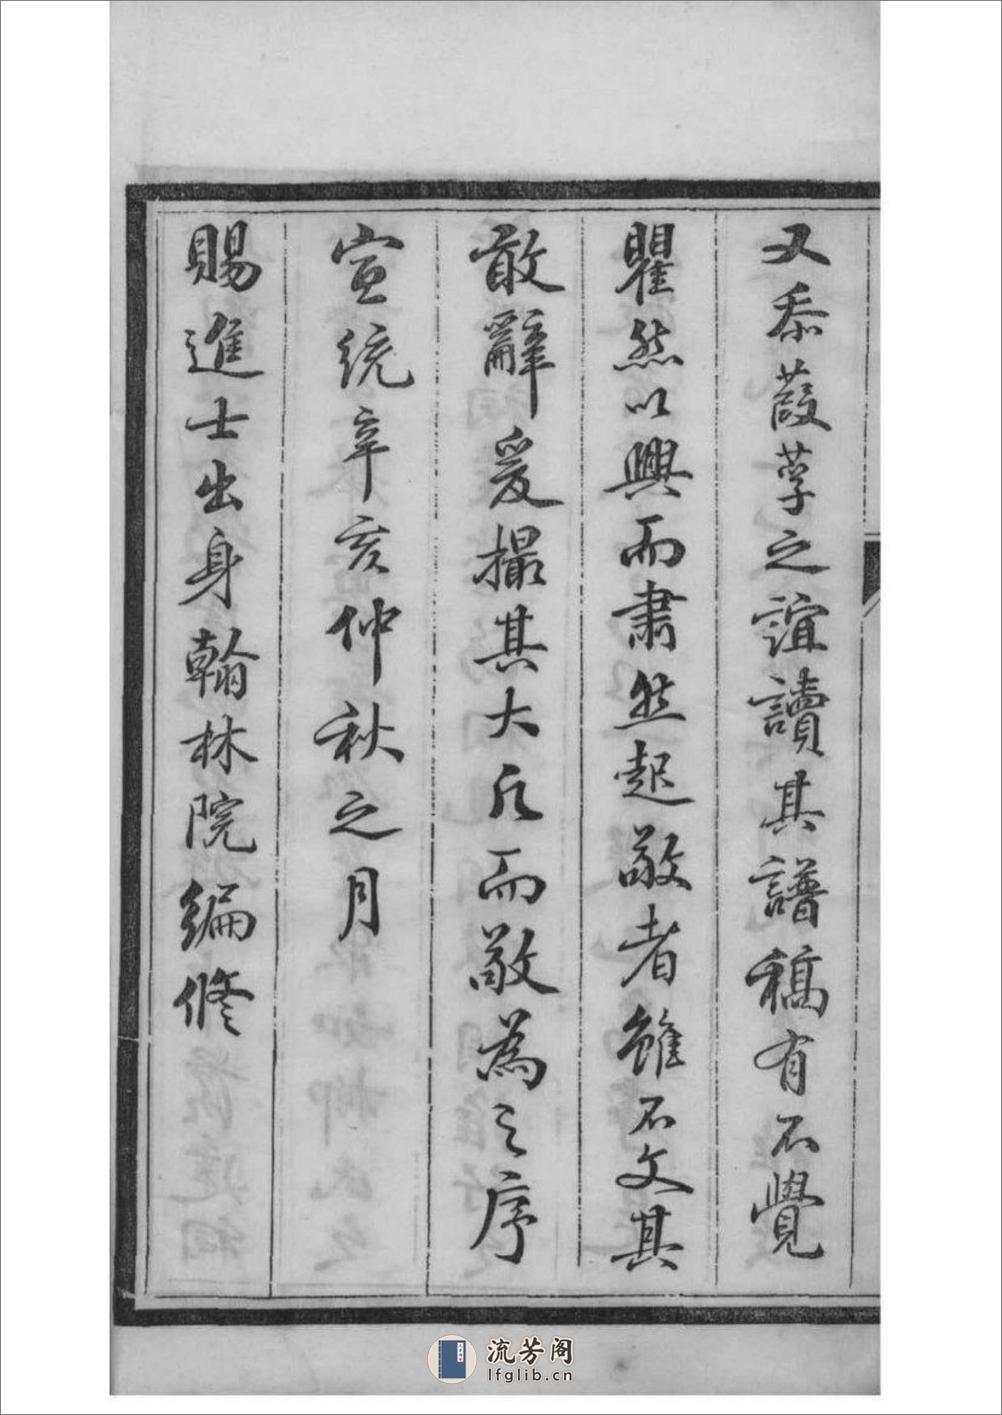 又忝葭莩之誼讀其譜稿有不覺
瞿然以興而肅然起敬者雖不文其
敢辭爰撮其大凡而敬為之序
宣統辛亥仲秋之月
賜進士出身翰林院編修
流芳阁
lfglib.cn